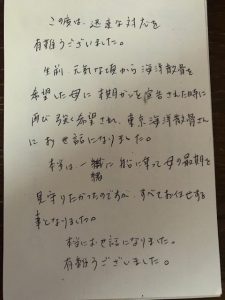 この度は、迅速な対応を
有難うございました。
生前、元気な頃から海洋散骨を
希望した母に末期がんを宣告された時に
再び強く希望され、東京海洋散骨さん
にお世話になりました。
本当は、一緒に船に乗って母の最期を
見守りたかったのですが、すべてお任せする
事となりました。
本当にお世話になりました。
有難うございました。